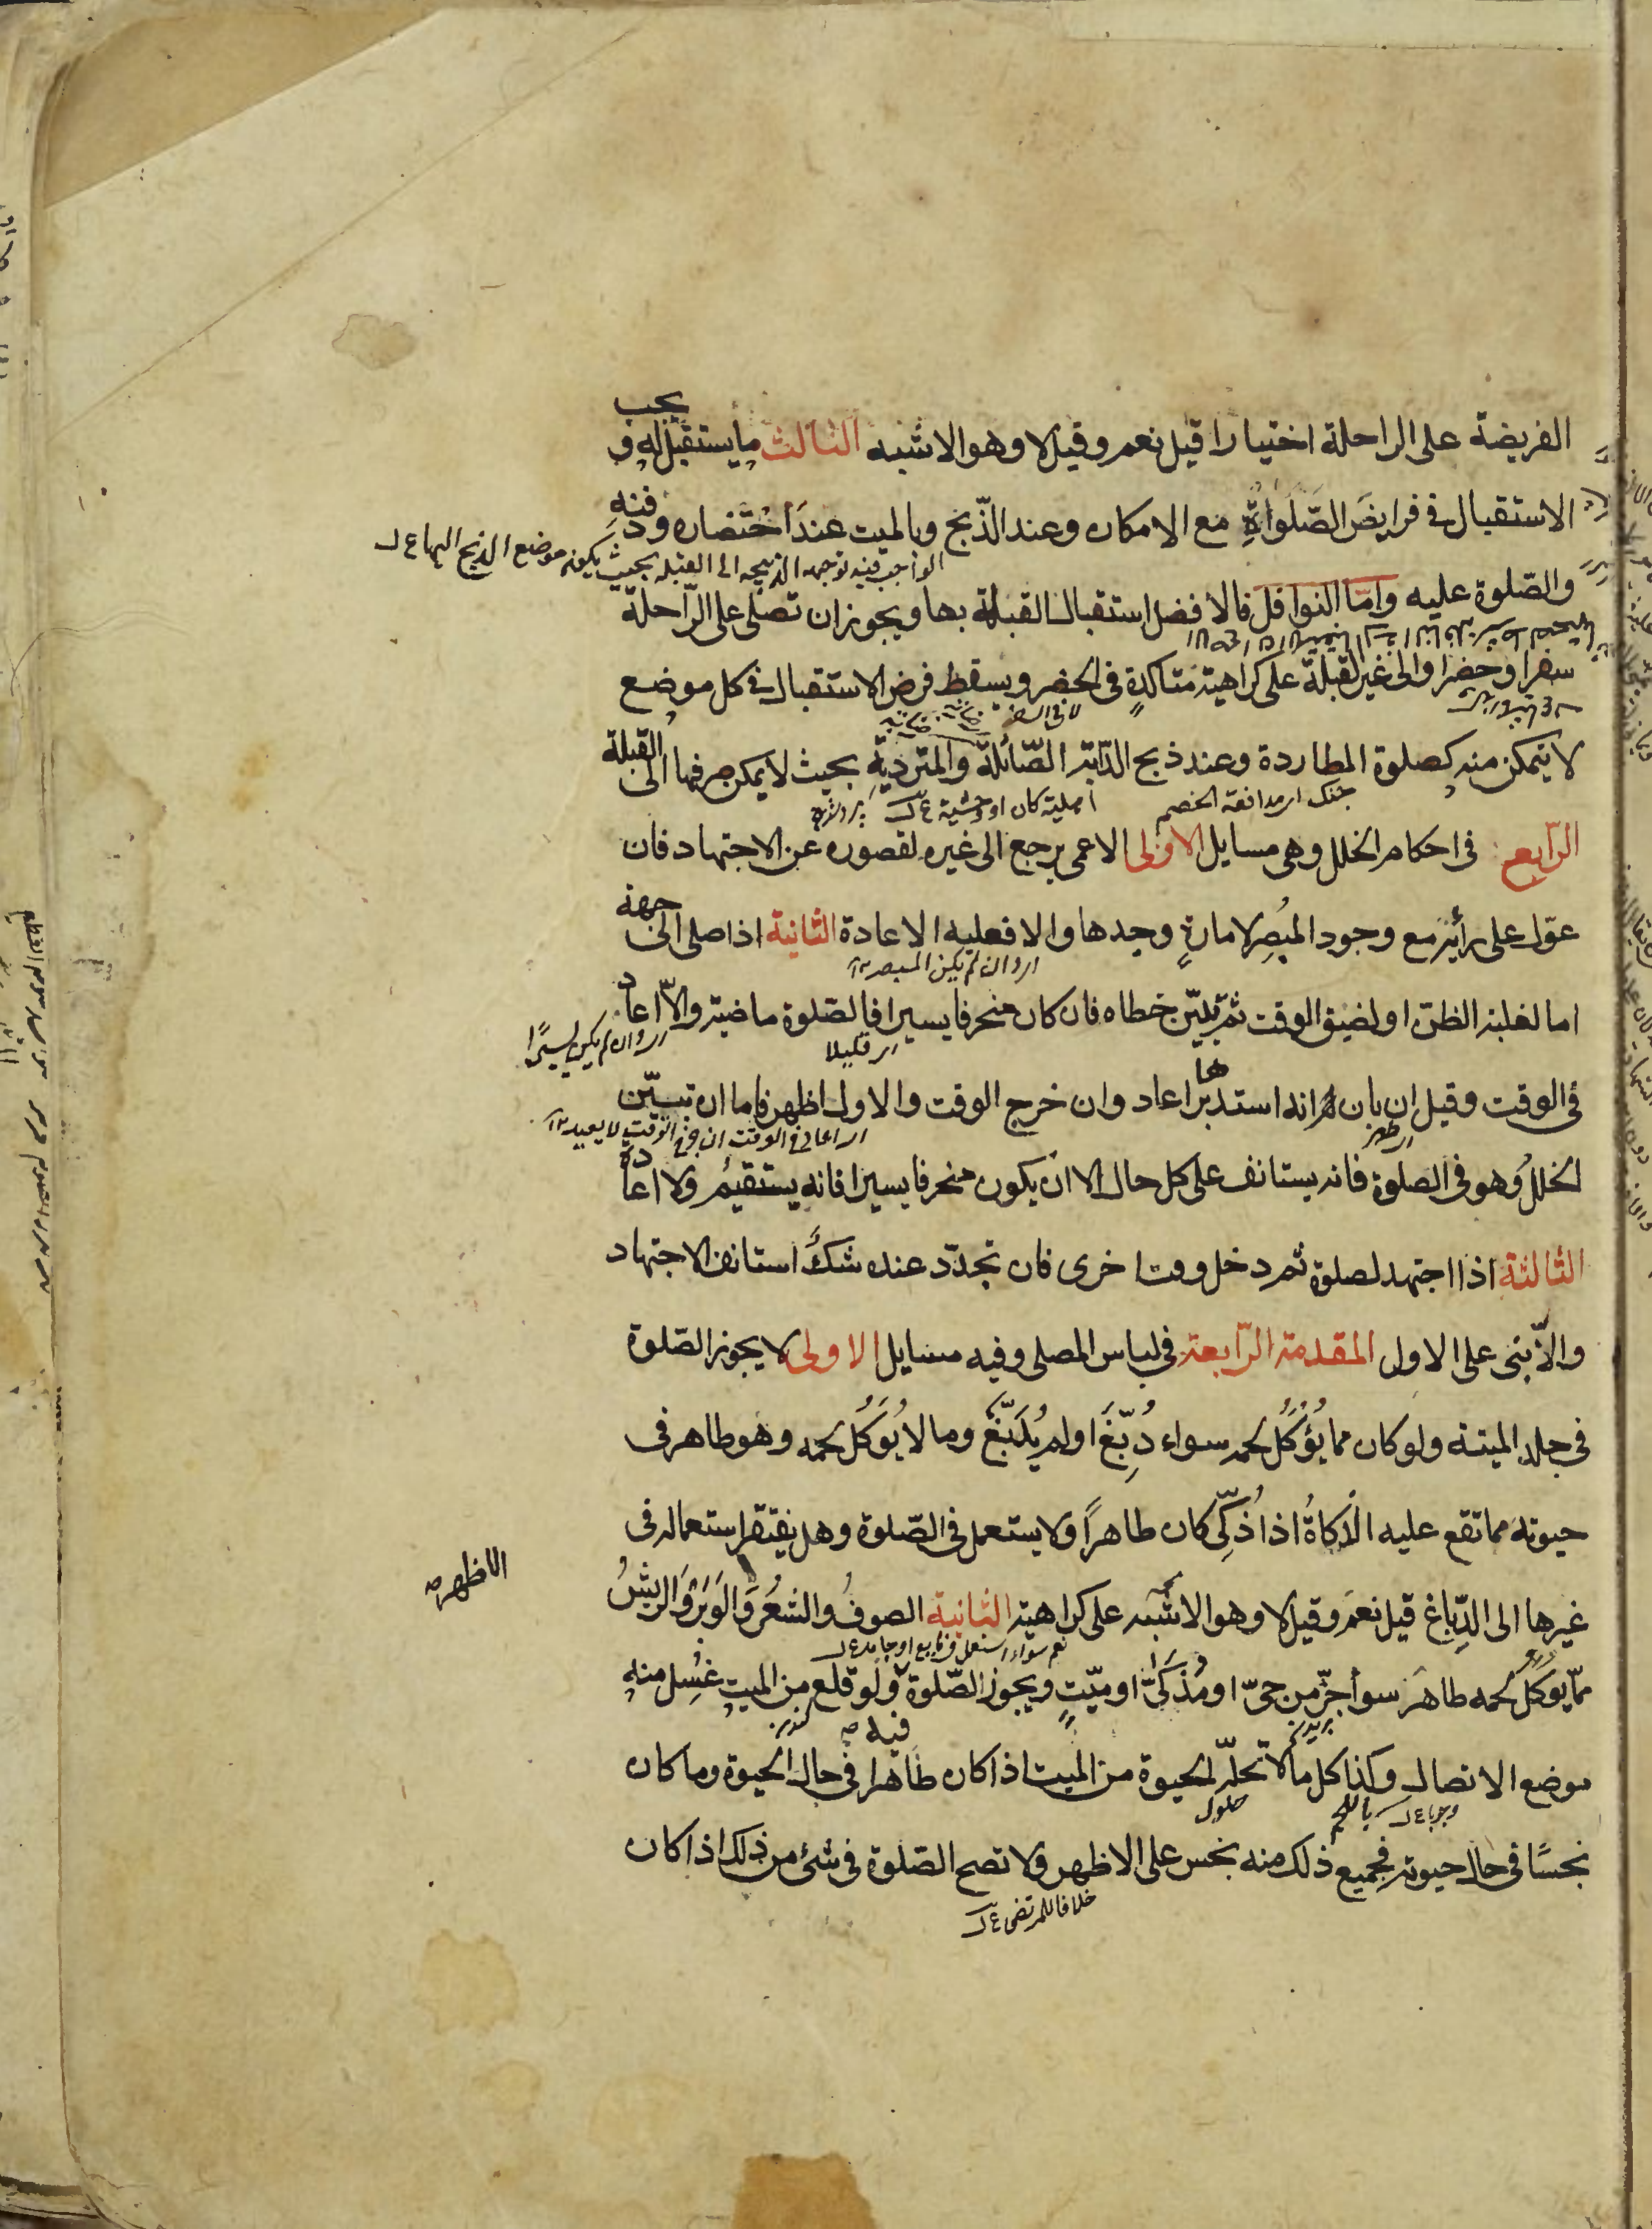 الفريضة على الراحلة اختيارا قيل نعم وقيل لا وهو الاشبه الثالث ما يستقبل له و يجب
الاستقبال في فرايض الصّلواة مع الامكان وعند الذّبح وبالميت عند احتضاره ودفنه
الواجب فيه توجيه الذبيحه الى القبله بحيث يكون موضع الذبح اليها ع ل
والصّلوة عليه وامّا النوافل فالافضل استقبال القبلة بها ويجوز ان تصلى على الرّاحلة
سفرا وحضرا والى غير القبلة على كراهية متاكدة في الحضر ويسقط فرض الاستقبال في كل موضع
لا في السفر
لا يتمكن منه كصلوة المطاردة وعند ذبح الدّابة الصّائلة والمتردية بحيث لا يمكن صرفها الى القبلة
جنك اى مدافعة الخصم
اهلية كان او وحشية ع ل
الرّابع في احكام الخلل وهي مسايل الاولى الاعمى يرجع الى غيره لقصوره عن الاجتهاد فان
عوّل على رأيه مع وجود المبصر لامارةٍ وجدها والا فعليه الاعادة الثانية اذا صلى الى جهة
اى وان لم يكن المبصر
اما لغلبة الظن او لضيق الوقت ثم تبيّن خطاه فان كان منحرفا يسيرا فالصلوة ماضية والاّ اعاد
اى قليلا
اى وان لم يكن يسيرًا
في الوقت وقيل ان بان انه استدبرها اعاد وان خرج الوقت والاول اظهر فاما ان تبيّن
اى ظهر
اى اعاد في الوقت ان خرج الوقت لا يعيد
الخلل وهو في الصلوة فانه يستانف على كل حال الا ان يكون منحرفا يسيرا فانه يستقيم ولا اعادة
الثالثة اذا اجتهد لصلوة ثم دخل وقت اخرى فان تجدّد عنده شكّ استانف الاجتهاد
والاّ بنى على الاول المقدمة الرّابعة في لباس المصلى وفيه مسايل الاولى لا يجوز الصّلوة
في جلد الميتة ولو كان مما يُؤكل لحمه سواء دُبّغ او لم يُدَبّغ وما لا يُوكل لحمه وهو طاهر في
حيوته مما تقع عليه الذكاةُ اذا ذُكّى كان طاهرًا ولا يستعمل في الصّلوة وهل يفتقر استعماله في
الاظهر ص
غيرها الى الدِّباغ قيل نعم وقيل لا وهو الاشبه على كراهية الثانية الصوفُ والشعَر والوَبَر والريشُ
نعم سواء استعمل في مايع او جامد ع ل
ممّا يوكل لحمه طاهر سوأ جزّ من حىّ او مُذكىّ او ميّتٍ ويجوز الصّلوة فيه ص ولو قلع من الميت غسل منه
بريدن
كندن
موضع الاتصال وكذا كل ما لا تحلّه الحيوة من الميت اذا كان طاهرا في حال الحيوة وما كان
وجوبا ع ل
باللحم
حلول
نجسًا في حال حيوته فجميع ذلك منه نجس على الاظهر ولا تصح الصّلوة في شئ من ذلك اذا كان
خلافا للمرتضى ع ل